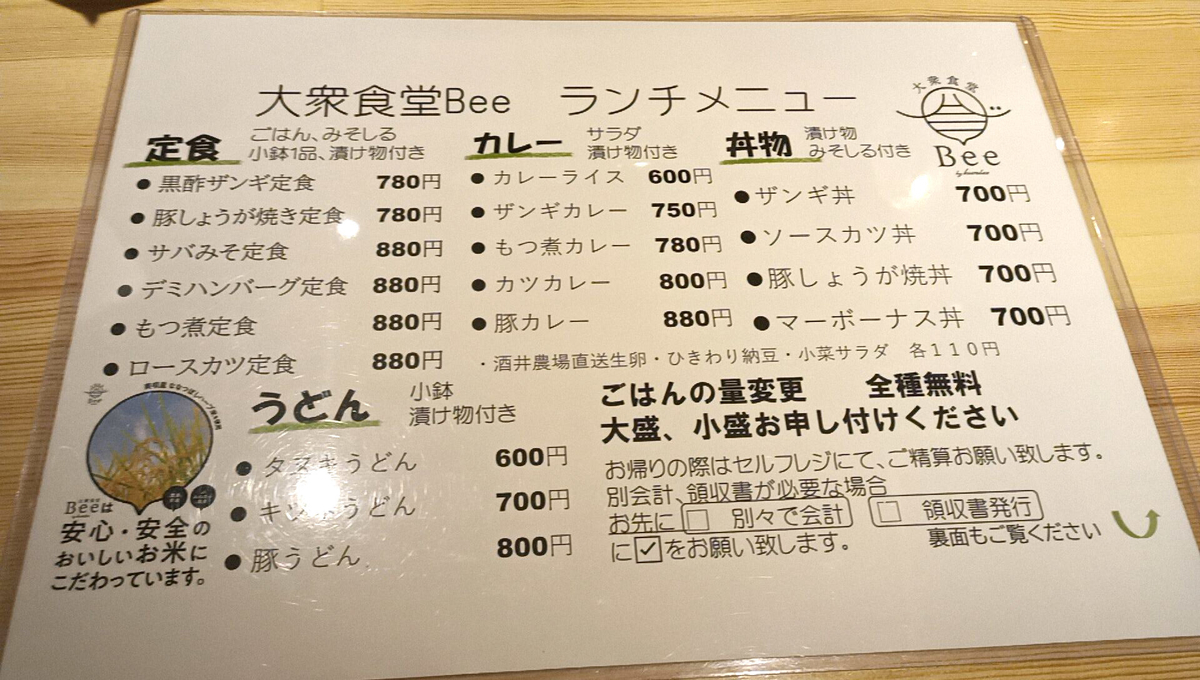 大衆食堂Bee ランチメニュー
大衆食堂
Bee
定食 ごはん、みそしる
小鉢1品、漬け物付き
●黒酢ザンギ定食 780円
●豚しょうが焼き定食 780円
●サバみそ定食 880円
●デミハンバーグ定食 880円
●もつ煮定食 880円
●ロースカツ定食 880円
カレー サラダ
漬け物付き
●カレーライス 600円
●ザンギカレー 750円
●もつ煮カレー 780円
●カツカレー 800円
●豚カレー 880円
丼物 漬け物
みそしる付き
●ザンギ丼 700円
●ソースカツ丼 700円
●豚しょうが焼丼 700円
●マーボーナス丼 700円
・酒井農場直送生卵・ひきわり納豆・小菜サラダ 各110円
うどん 小鉢
漬け物付き
●タヌキうどん 600円
●キツネうどん 700円
●豚うどん 800円
ごはんの量変更 全種無料
大盛、小盛お申し付けください
お帰りの際はセルフレジにて、ご精算お願い致します。
別会計、領収書が必要な場合
お先に □ 別々で会計 □ 領収書発行
に☑をお願い致します。
裏面もご覧ください
Beeは
安心・安全の
おいしいお米に
こだわっています。